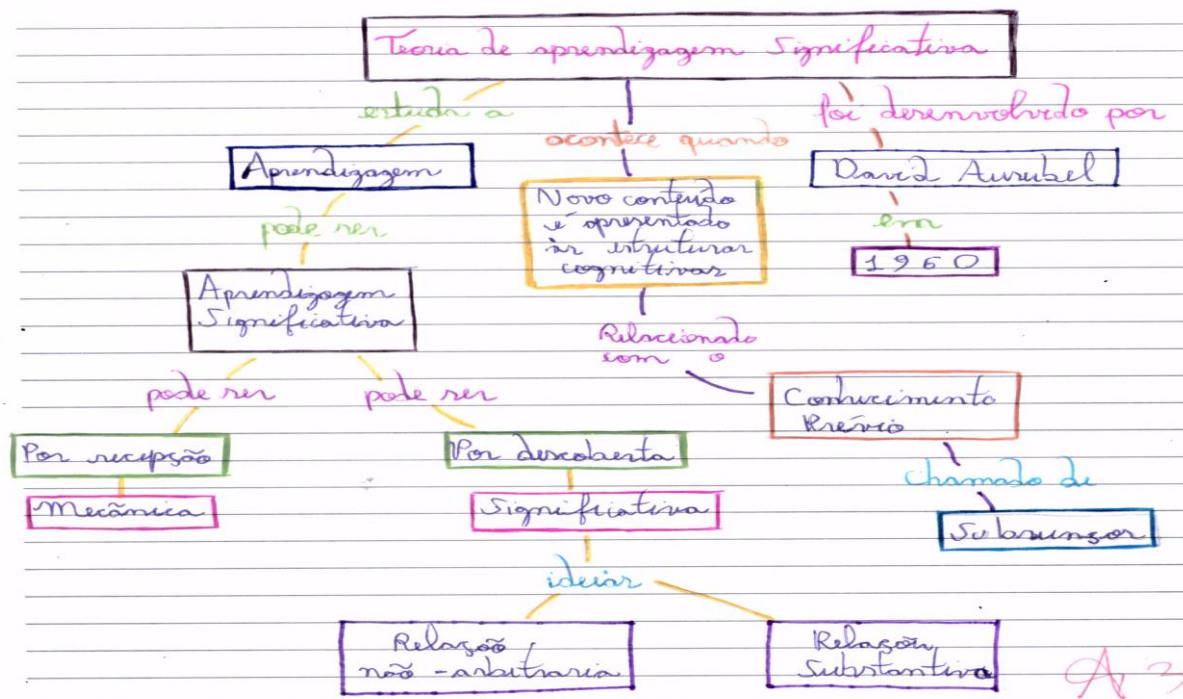 Teoria de aprendizagem Significativa
estuda a
acontece quando
foi desenvolvido por
Aprendizagem
Novo conteúdo
é apresentado
às estruturas
cognitivas
David Ausubel
em
1960
pode ser
Aprendizagem
Significativa
Relacionado
com o
pode ser
pode ser
Conhecimento
Prévio
Por recepção
Por descoberta
chamado de
Mecânica
Significativa
Subsunçor
ideias
Relação
não-arbitraria
Relação
Substantiva
A 3